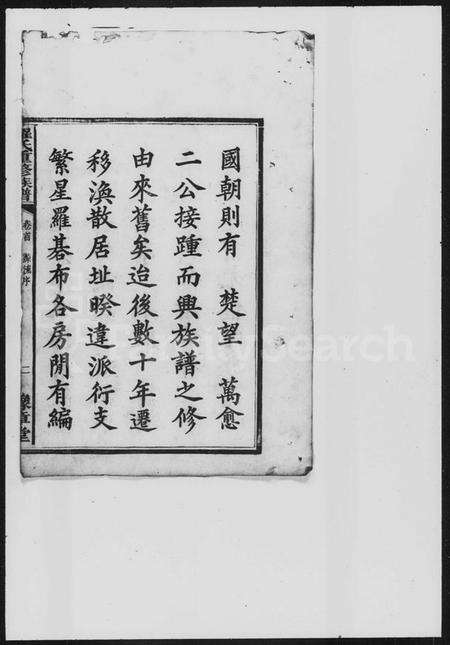 國朝則有 楚望 萬愈
二公接踵而興族譜之修
由來舊矣迨後數十年遷
移渙散居址暌違派衍支
繁星羅碁布各房閒有編
氏重修族譜 卷首 序 二 堂
FamilySearch